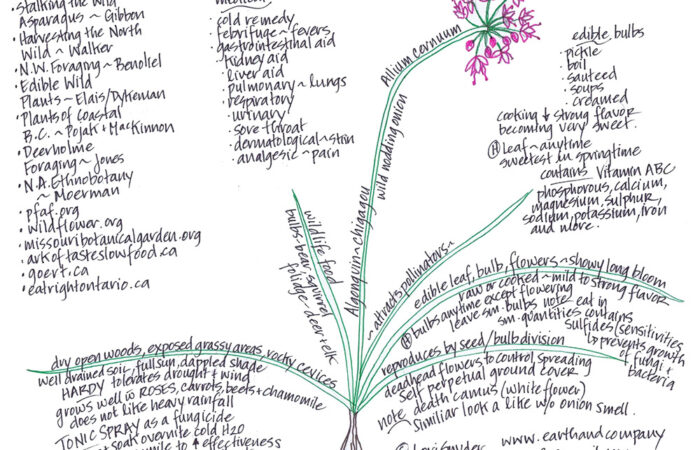 Stalking the Wild
Asparagus ~ Gibbon
· Harvesting the North
Wild ~ Walker
· N.W. Foraging ~ Benoliel
· Edible Wild
Plants ~ Elais/Dykeman
· Plants of Coastal
B.C. ~ Pojak + MacKinnon
· Deerholme
Foraging ~ Jones
· N.A. Ethnobotany
~ Moerman
· pfaf.org
· wildflower.org
· missouribotanicalgarden.org
· arkoftasteslowfood.ca
· goert.ca
· eatrightontario.ca
medicinal
· cold remedy
· febrifuge ~ fevers
· gastrointesthal aid
· kidney aid
· liver aid
· pulmonary ~ lungs
· respiratory
· urinary
· sore throat
· dermatological ~ skin
· analgesic ~ pain
Allium cernuum
wild nodding onion
Algonquin ~ chigagou
edible, bulbs
· pickle
· boil
· sauteed
· soups
· creamed
cooking ↓ strong flavor
becoming very sweet.
Ⓗ Leaf ~ anytime
sweetest in springtime
contains Vitamin ABC
phosphorous, calcium,
magnesium, sulphur,
sodium, potassium, iron
and more.
wildlife food
bulbs - bear, squirrel
foliage - deer + elk
~ attracts pollinators ~
edible leaf, bulb, flowers ~ showy long bloom
raw or cooked ~ mild to strong flavor
Ⓗ bulbs anytime except flowering
leave sm. bulbs note eat in
sm. quantities contains
sulfides (sensitivities
↳ prevents growth
of fungi +
bacteria
reproduces by seed / bulb division
deadhead flowers to control spreading
self perpetual ground cover
note death camus (white flower)
similiar look a like w/o onion smell.
dry open woods, exposed grassy areas, rocky cevices
well drained soil, full sun, dappled shade
HARDY tolerates drought + wind
grows well w̄ ROSES, carrots, beets + chamomile
does not like heavy rainfall
TONIC SPRAY as a fungicide
soak overnite cold H2O
to ↑ effectiveness
www.earthandcompany